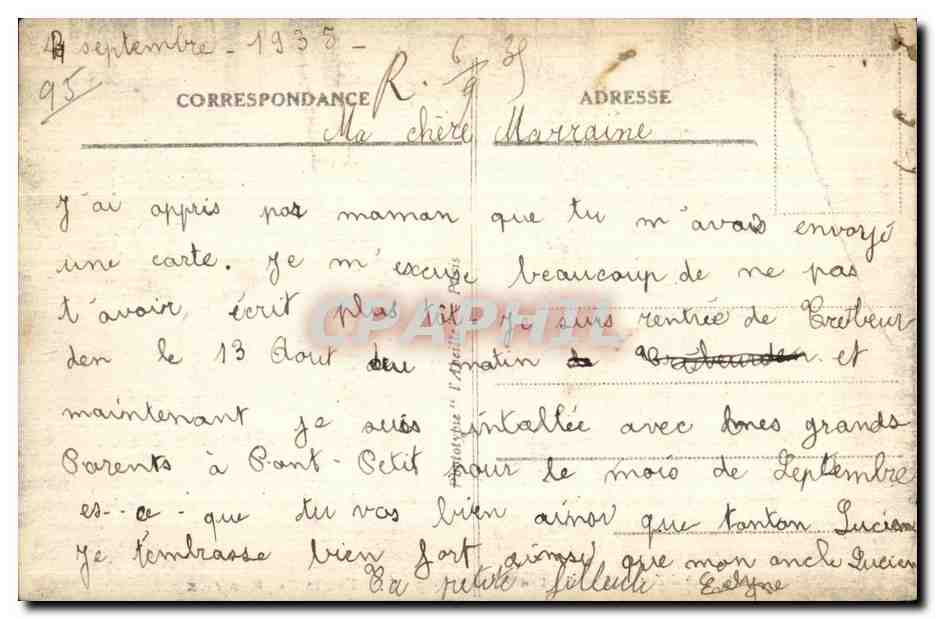 4 septembre - 1935 -
95
R. 6/9 35
CORRESPONDANCE
ADRESSE
Ma chère Marraine
J'ai appris par maman que tu m'avais envoyé
une carte. Je m'excuse beaucoup de ne pas
t'avoir écrit plus tôt - Je suis rentrée de Trebeur-
den le 13 Aout au matin et
maintenant je suis intallée avec mes grands
Parents à Pont-Petit pour le mois de Septembre
es-ce-que tu vas bien ainsi que tonton Lucien
Je t'embrasse bien fort ainsi que mon oncle Lucien
Ta petite filleule
Phototype "l'Abeille" Paris
CPAPHIL